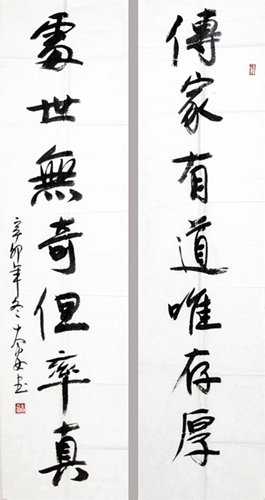 傳家有道唯存厚
處世無奇但率真
辛卯年冬